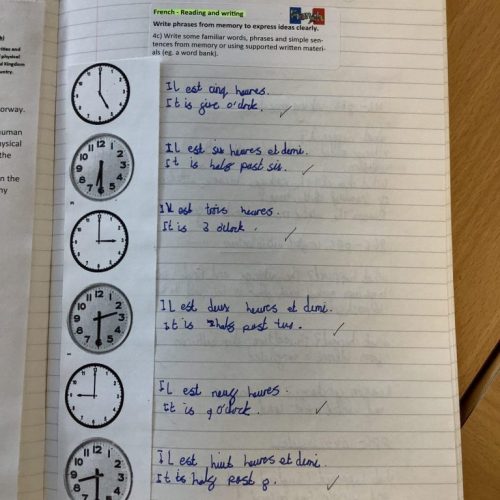 French - Reading and writing
Write phrases from memory to express ideas clearly.
4c) Write some familiar words, phrases and simple sen-
tences from memory or using supported written materi-
als (eg. a word bank).
Il est cinq heures.
It is give o'clock.
Il est six heures et demi.
It is half past six.
Il est trois heures.
It is 3 o'clock.
Il est deux heures et demi.
It is half past
Il est neuf heures.
It is 9 o'clock.
Il est huit heures et demi.
It is half past
orway.
human
ysical
the
n the
ny